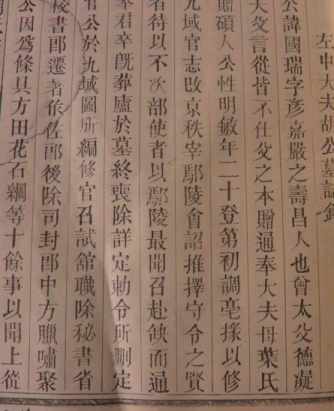 左中大夫胡公墓誌銘
公諱國瑞字彥嘉嚴之壽昌人也曾大父德凝
大父言從皆不仕父之本贈通奉大夫母葉氏
贈碩人公性明敏年二十登第初調亳掾以修
九域官志改京秩宰鄢陵會詔推擇守令之賢
者待以不次部使者以鄢陵最聞召赴缺而通
奉君卒旣葬廬於墓終喪除詳定勅令所刪定
官公於九域圖所編修官召試舘職除秘書省
校書郎遷著作佐郎後除司封郎中方臘嘯聚
公因爲條具方田花石綱等十餘事以聞上從